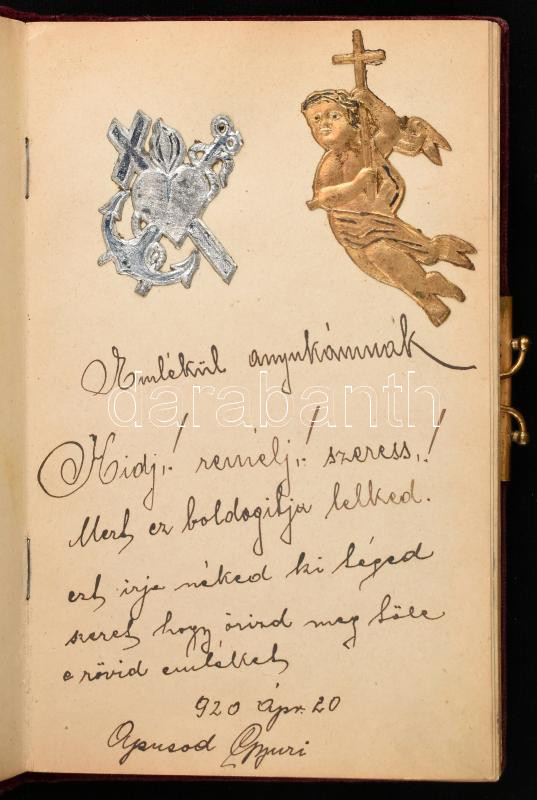 Emlékül anyukámnak
darabanth
Hidj,! remélj,! szeress,!
Mert ez boldogitja lelked.
ezt irja néked ki téged
szeret hogy őrizd meg tőle
e rövid emléket
920 ápr. 20
Apusod Gyuri